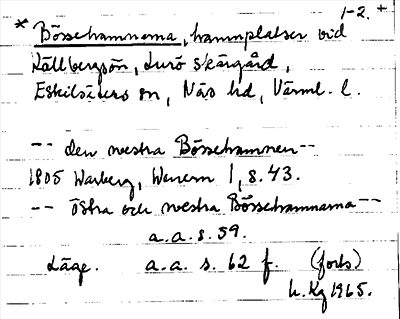 1-2. +
* Bössehamnarna, hamnplatser vid
Källbergsön, Lurö skärgård,
Eskilsäters sn, Näs hd, Värml. l.
-- den westra Bössehamnen --
1805 Warberg, Wenern 1, s. 43.
-- östra och westra Bössehamnarna --
a.a. s. 59.
Läge. a.a. s. 62 f. (forts)
Kg 1965.